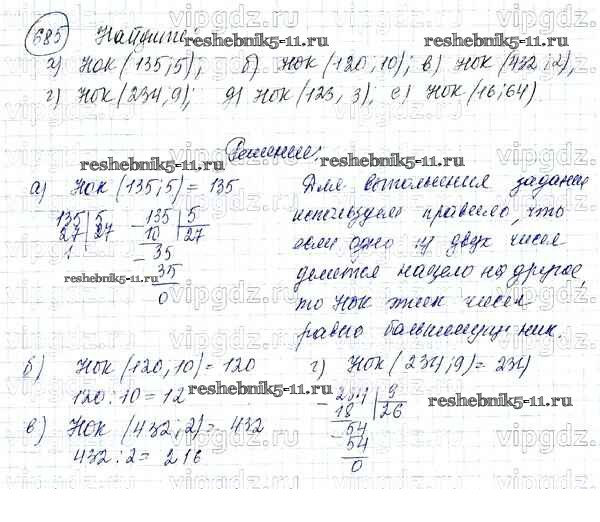 685 Найдите
reshebnik5-11.ru
а) НОК (135; 5); б) НОК (120; 10); в) НОК (432; 2);
г) НОК (234, 9); д) НОК (123, 3); е) НОК (16; 64)
Решение:
reshebnik5-11.ru
а) НОК (135; 5) = 135
Для выполнения задания
используем правило, что
если одно из двух чисел
делится нацело на другое,
то НОК этих чисел
равно большему из них.
135 | 5
27 | 27
1
135 | 5
10 | 27
35
35
0
reshebnik5-11.ru
б) НОК (120; 10) = 120
120 : 10 = 12
reshebnik5-11.ru
в) НОК (432; 2) = 432
432 : 2 = 216
г) НОК (234; 9) = 234
234 | 9
18 | 26
54
54
0
reshebnik5-11.ru
vipgdz.ru